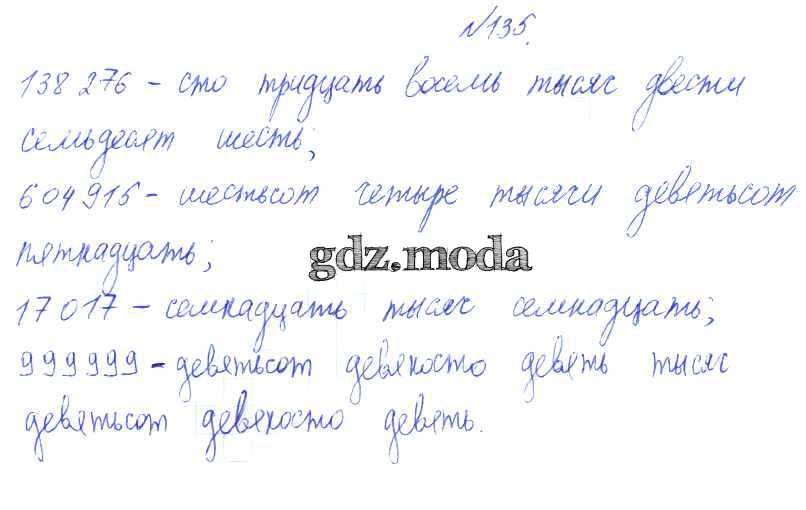 №135.
138 276 - сто тридцать восемь тысяч двести
семьдесят шесть;
604 915 - шестьсот четыре тысячи девятьсот
пятнадцать;
gdz.moda
17 017 - семнадцать тысяч семнадцать;
999 999 - девятьсот девяносто девять тысяч
девятьсот девяносто девять.